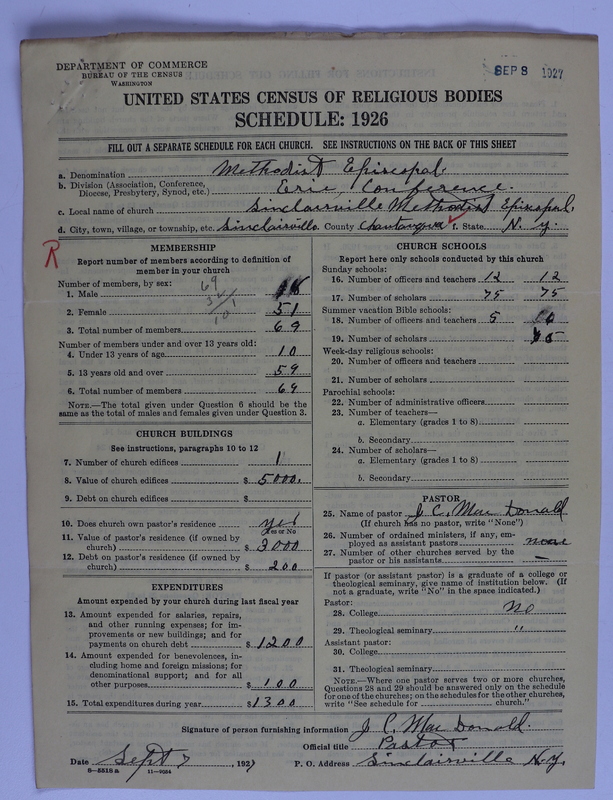 DEPARTMENT OF COMMERCE
BUREAU OF THE CENSUS
WASHINGTON
SEP 8 1927
UNITED STATES CENSUS OF RELIGIOUS BODIES
SCHEDULE: 1926
FILL OUT A SEPARATE SCHEDULE FOR EACH CHURCH. SEE INSTRUCTIONS ON THE BACK OF THIS SHEET
a. Denomination Methodist Episcopal.
b. Division (Association, Conference, Diocese, Presbytery, Synod, etc.) Erie, Conference.
c. Local name of church Sinclairville Methodist Episcopal.
d. City, town, village, or township, etc. Sinclairville. County Chautauqua f. State N. Y.
R
MEMBERSHIP
Report number of members according to definition of
member in your church
Number of members, by sex:
69
1. Male 18
34
2. Female 51
101
3. Total number of members 69
Number of members under and over 13 years old:
4. Under 13 years of age 10
5. 13 years old and over 59
6. Total number of members 69
NOTE.—The total given under Question 6 should be the
same as the total of males and females given under Question 3.
CHURCH BUILDINGS
See instructions, paragraphs 10 to 12
7. Number of church edifices 1
8. Value of church edifices $ 5000.
9. Debt on church edifices $
10. Does church own pastor's residence yes
Yes or No
11. Value of pastor's residence (if owned by
church) $ 3000
12. Debt on pastor's residence (if owned by
church) $ 200
EXPENDITURES
Amount expended by your church during last fiscal year
13. Amount expended for salaries, repairs,
and other running expenses; for im-
provements or new buildings; and for
payments on church debt $ 1200
14. Amount expended for benevolences, in-
cluding home and foreign missions; for
denominational support; and for all
other purposes $ 100
15. Total expenditures during year $ 1300
CHURCH SCHOOLS
Report here only schools conducted by this church
Sunday schools:
16. Number of officers and teachers 12 12
17. Number of scholars 75 75
Summer vacation Bible schools:
18. Number of officers and teachers 5
19. Number of scholars
Week-day religious schools:
20. Number of officers and teachers
21. Number of scholars
Parochial schools:
22. Number of administrative officers
23. Number of teachers—
a. Elementary (grades 1 to 8)
b. Secondary
24. Number of scholars—
a. Elementary (grades 1 to 8)
b. Secondary
PASTOR
25. Name of pastor J. C. Mac Donald
(If church has no pastor, write "None")
26. Number of ordained ministers, if any, em-
ployed as assistant pastors none
27. Number of other churches served by the
pastor or his assistants —
If pastor (or assistant pastor) is a graduate of a college or
theological seminary, give name of institution below. (If
not a graduate, write "No" in the space indicated.)
Pastor:
28. College No
29. Theological seminary "
Assistant pastor:
30. College
31. Theological seminary
NOTE.—Where one pastor serves two or more churches,
Questions 28 and 29 should be answered only on the schedule
for one of the churches; on the schedules for the other churches,
write "See schedule for church."
Signature of person furnishing information J. C. Mac Donald.
Official title Pastor
Date Sept 7, 1927 P. O. Address Sinclairville N.Y.
8-5518 a 11-9054